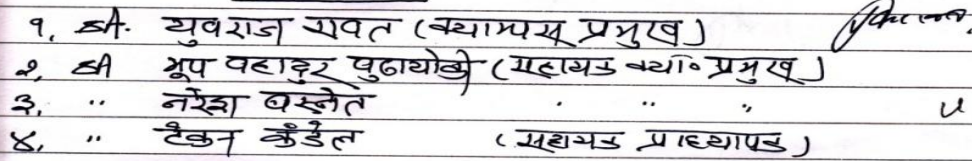 १. श्री. युवराज रावत (क्याम्पस प्रमुख)
२. श्री भूप बहादुर बुढाथोकी (सहायक क्या॰ प्रमुख)
३. " नरेश बस्नेत " "
४. " टेकन कँडेल (सहायक प्राध्यापक)